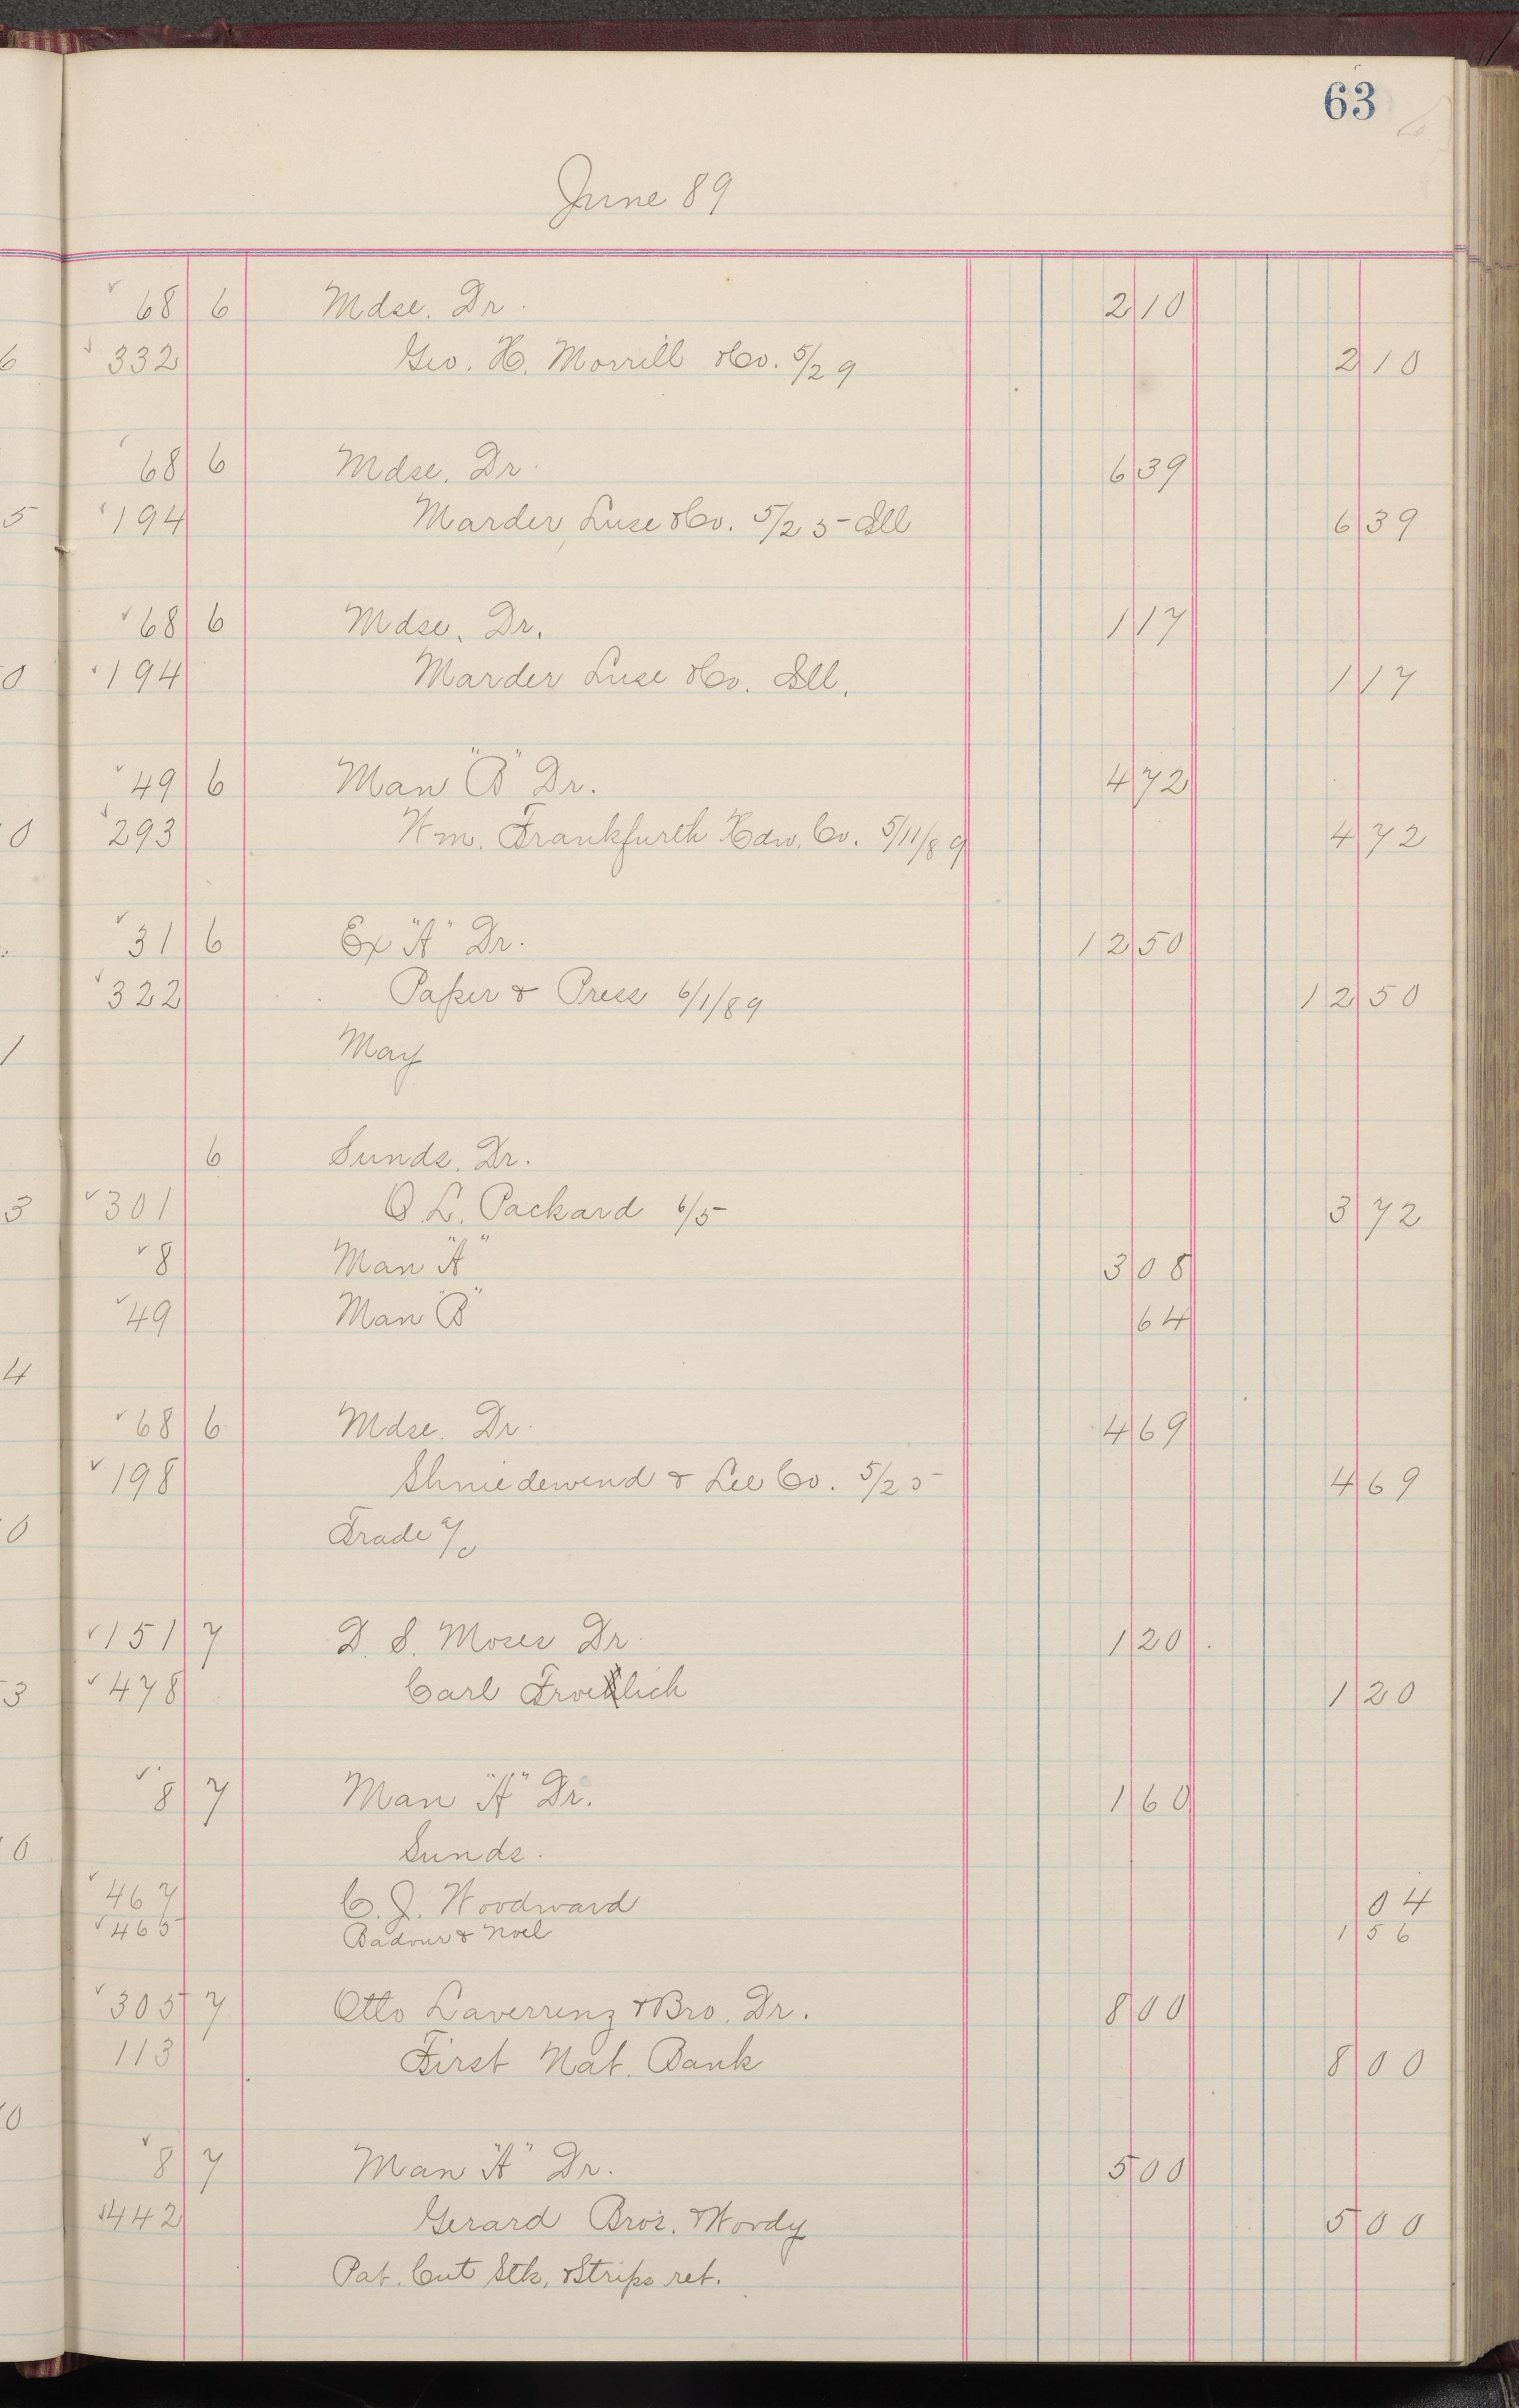 63
June 89
✓ 68 6 Mdse. Dr. 2 10
✓ 332 Geo. H. Morrill & Co. 5/29 2 10
✓ 68 6 Mdse. Dr. 6 39
✓ 194 Marder Luse & Co. 5/25 Ill 6 39
✓ 68 6 Mdse. Dr. 1 17
✓ 194 Marder Luse & Co. Ill. 1 17
✓ 49 6 Man "B" Dr. 4 72
✓ 293 Wm. Frankfurth Hdw. Co. 5/11/89 4 72
✓ 31 6 Ex "A" Dr. 12 50
✓ 322 Paper & Press 6/1/89 12 50
May
6 Sunds. Dr.
✓ 301 O. L. Packard 6/5 3 72
✓ 8 Man "A" 3 08
✓ 49 Man "B" 64
✓ 68 6 Mdse. Dr. 4 69
✓ 198 Shniedewend & Lee Co. 5/25 4 69
Trade a/c
✓ 151 7 D. S. Moses Dr. 1 20
✓ 478 Carl Froelich 1 20
✓ 8 7 Man "A" Dr. 1 60
Sunds.
✓ 467 C. J. Woodward 04
✓ 465 Badour & Noel 1 56
✓ 305 7 Otto Laverrenz & Bro. Dr. 8 00
113 First Nat. Bank 8 00
✓ 8 7 Man "A" Dr. 5 00
✓ 442 Gerard Bros. & Woody 5 00
Pat. Cut Stk, & Strips ret.